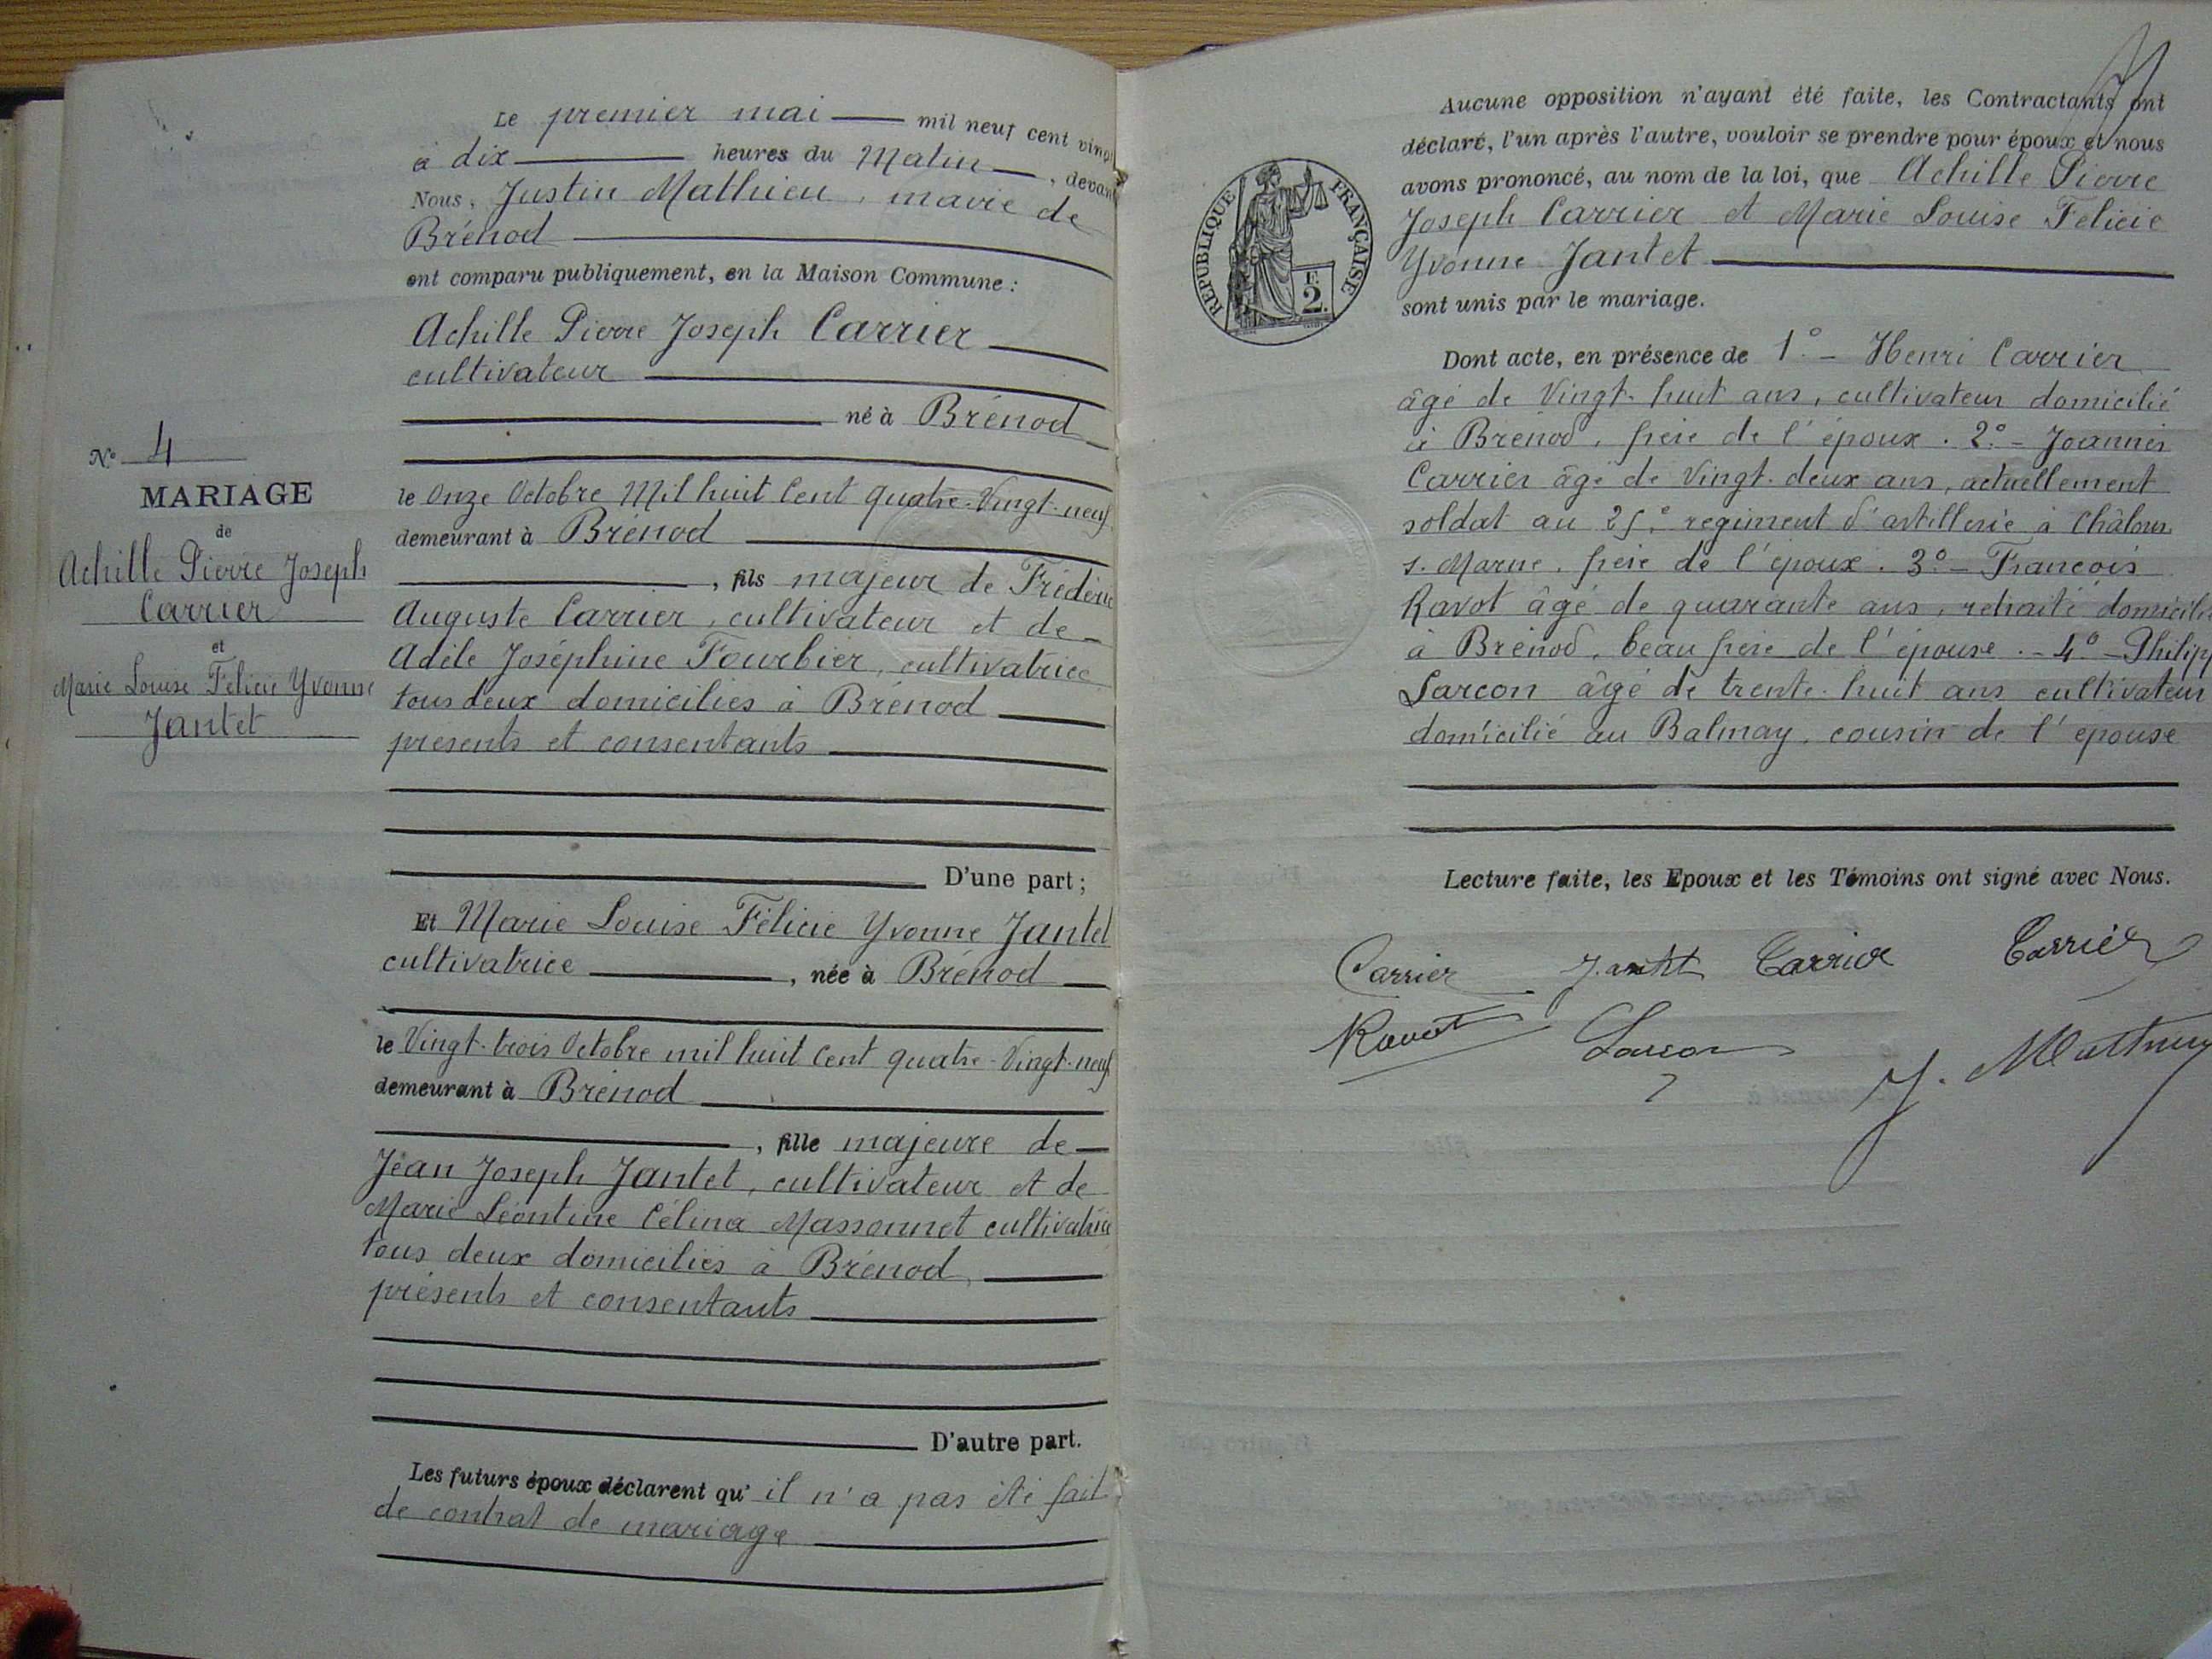 N° 4
MARIAGE
de
Achille Pierre Joseph
Carrier
et
Marie Louise Félicie Yvonne
Jantet
Le premier mai mil neuf cent vingt
à dix heures du Matin, devant
Nous, Justin Mathieu, maire de
Brénod
ont comparu publiquement, en la Maison Commune :
Achille Pierre Joseph Carrier
cultivateur
né à Brénod
le Onze Octobre Mil huit Cent quatre-Vingt-neuf
demeurant à Brénod
, fils majeur de Frédéric
Auguste Carrier, cultivateur et de
Adèle Joséphine Fourbier, cultivatrice
tous deux domiciliés à Brénod
présents et consentants
D'une part ;
Et Marie Louise Félicie Yvonne Jantet
cultivatrice, née à Brénod
le Vingt-trois Octobre mil huit Cent quatre-Vingt-neuf
demeurant à Brénod
, fille majeure de
Jean Joseph Jantet, cultivateur et de
Marie Léontine Célina Massonnet cultivatrice
tous deux domiciliés à Brénod,
présents et consentants
D'autre part.
Les futurs époux déclarent qu' il n'a pas été fait
de contrat de mariage
REPUBLIQUE FRANÇAISE
F. 2.
Aucune opposition n'ayant été faite, les Contractants ont
déclaré, l'un après l'autre, vouloir se prendre pour époux et nous
avons prononcé, au nom de la loi, que Achille Pierre
Joseph Carrier et Marie Louise Félicie
Yvonne Jantet
sont unis par le mariage.
Dont acte, en présence de 1° - Henri Carrier
âgé de Vingt-huit ans, cultivateur domicilié
à Brénod, frère de l'époux. 2° - Joannès
Carrier âgé de Vingt-deux ans, actuellement
soldat au 25e régiment d'artillerie à Châlons
s. Marne, frère de l'époux. 3° - François
Ravot âgé de quarante ans, retraité domicilié
à Brénod, beau frère de l'épouse. - 4° - Philippe
Sarcon âgé de trente-huit ans cultivateur
domicilié au Balmay, cousin de l'épouse
Lecture faite, les Epoux et les Témoins ont signé avec Nous.
Carrier Jantet Carrier Carrier
Ravot
J. Mathieu